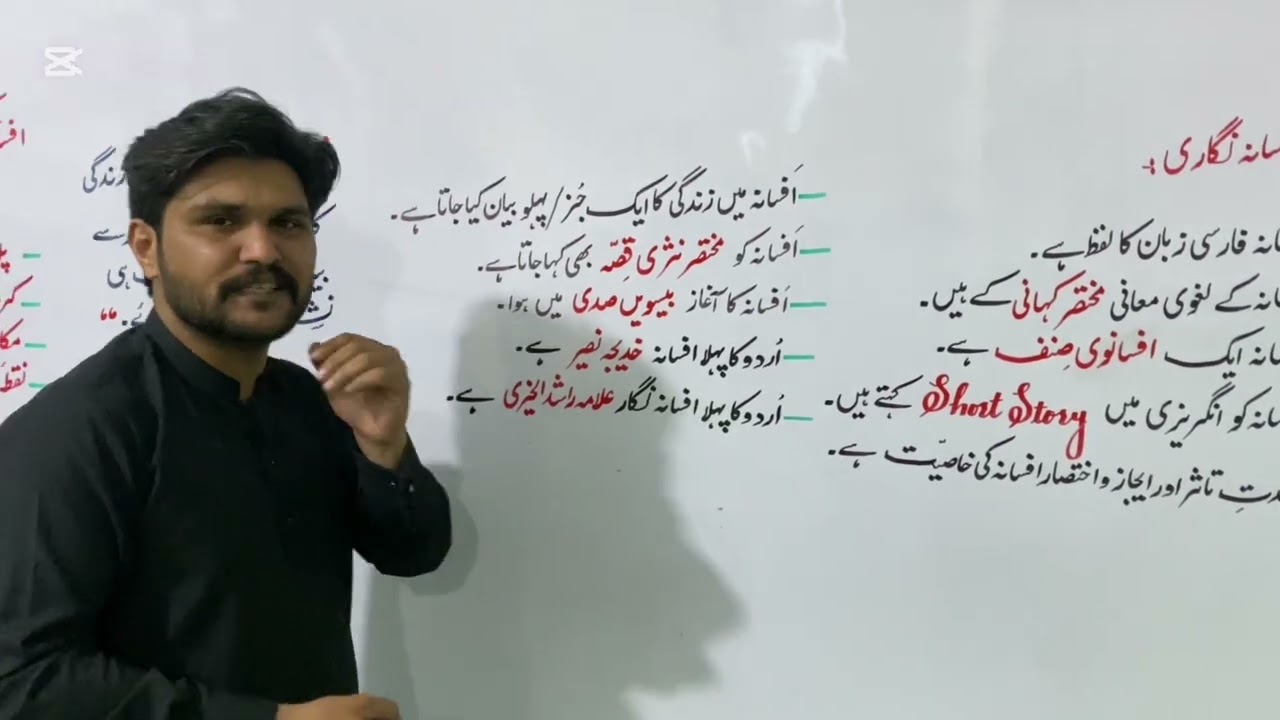 افسانہ نگاری :
افسانہ فارسی زبان کا لفظ ہے۔
افسانہ کے لغوی معانی مختصر کہانی کے ہیں۔
افسانہ ایک افسانوی صِنف ہے۔
افسانہ کو انگریزی میں Short Story کہتے ہیں۔
وحدتِ تاثر اور ایجاز و اختصار افسانہ کی خاصیّت ہے۔
اَفسانہ میں زندگی کا ایک جُز/پہلو بیان کیا جاتا ہے۔
اَفسانہ کو مختصر نثری قِصّہ بھی کہا جاتا ہے۔
اَفسانہ کا آغاز بیسویں صدی میں ہوا۔
اُردو کا پہلا افسانہ خدیجہ نصیر ہے۔
اُردو کا پہلا افسانہ نگار علامہ راشد الخیری ہے۔
زندگی